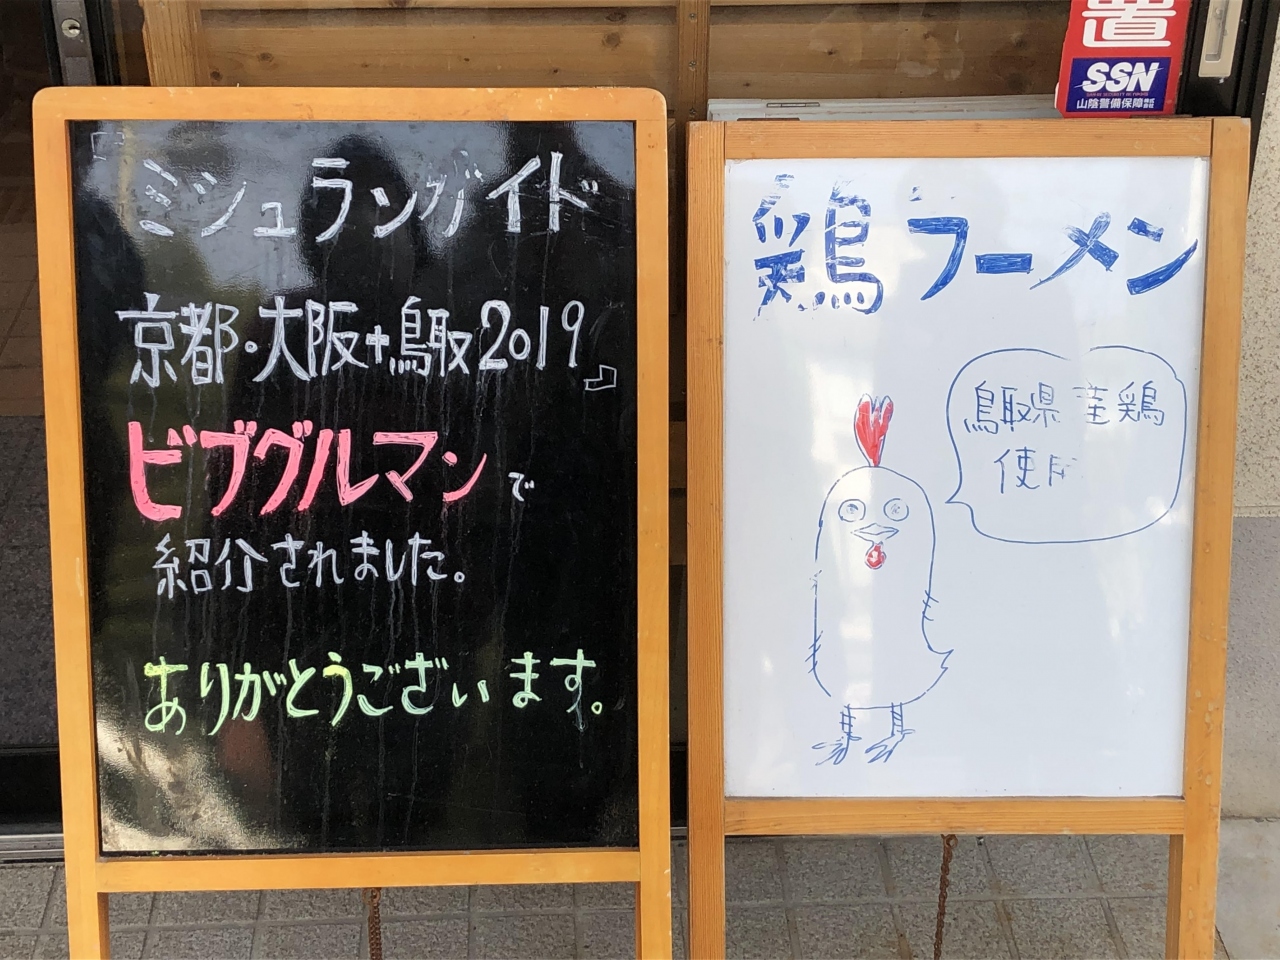 『ミシュランガイド
京都・大阪+鳥取2019』
ビブグルマンで
紹介されました。
ありがとうございます。
鶏ラーメン
鳥取県産鶏
使用
置
SSN
山陰警備保障株式会社